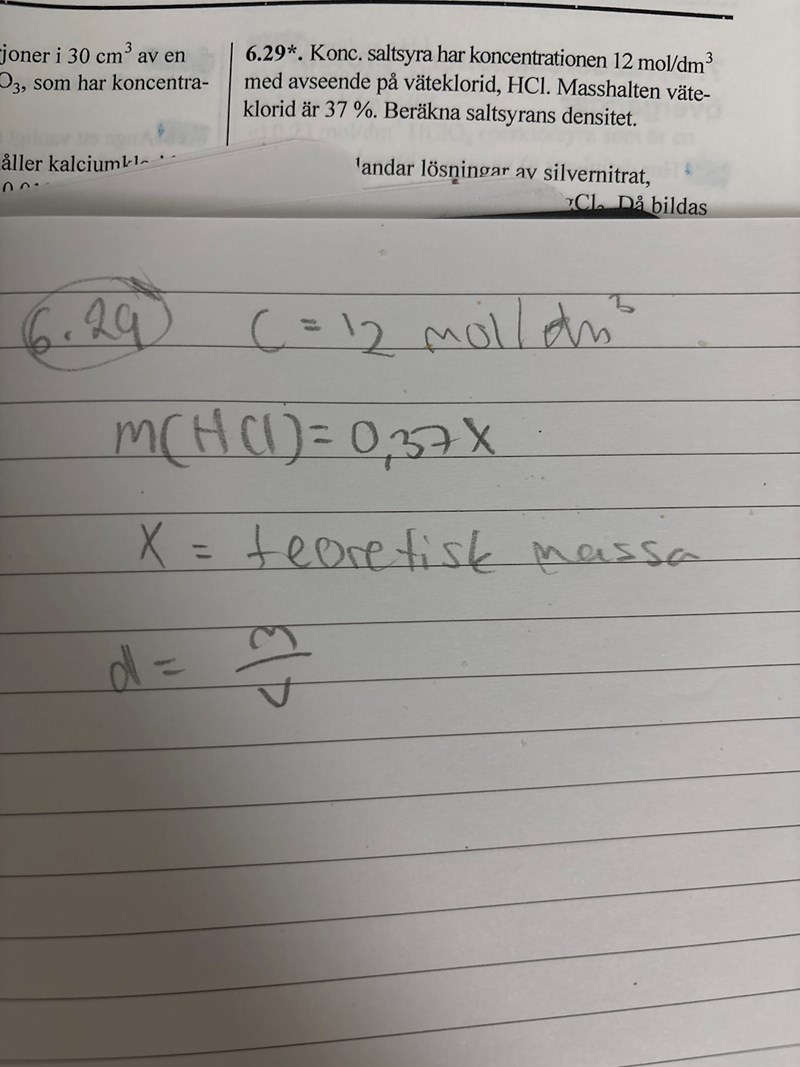 joner i 30 cm³ av en
O₃, som har koncentra-
åller kalciumkl
6.29*. Konc. saltsyra har koncentrationen 12 mol/dm³
med avseende på väteklorid, HCl. Masshalten väte-
klorid är 37 %. Beräkna saltsyrans densitet.
andar lösningar av silvernitrat,
Cl₂ Då bildas
6.29 C = 12 mol/dm³
m(HCl) = 0,37X
X = teoretisk massa
d = m/v